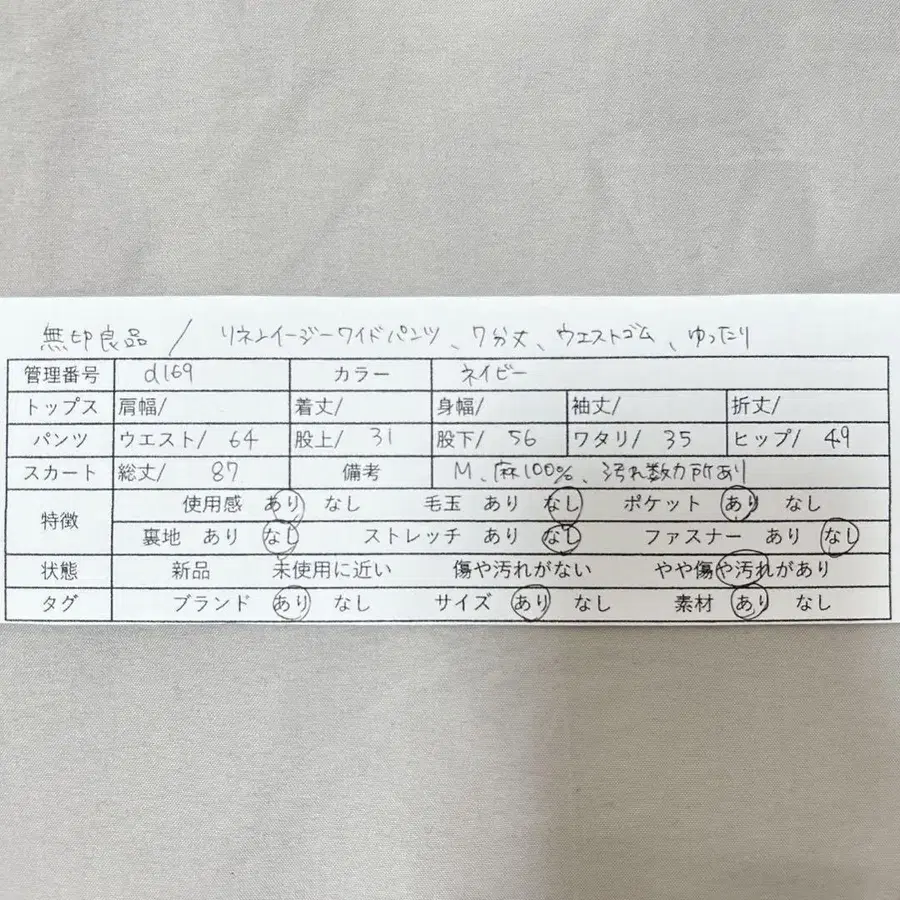 無印良品 / リネンイージーワイドパンツ、7分丈、ウエストゴム、ゆったり
管理番号 d169 カラー ネイビー
トップス 肩幅/ 着丈/ 身幅/ 袖丈/ 折丈/
パンツ ウエスト/ 64 股上/ 31 股下/ 56 ワタリ/ 35 ヒップ/ 49
スカート 総丈/ 87 備考 M、麻100%、汚れ数カ所あり
特徴 使用感 あり なし 毛玉 あり なし ポケット あり なし
裏地 あり なし ストレッチ あり なし ファスナー あり なし
状態 新品 未使用に近い 傷や汚れがない やや傷や汚れがあり
タグ ブランド あり なし サイズ あり なし 素材 あり なし